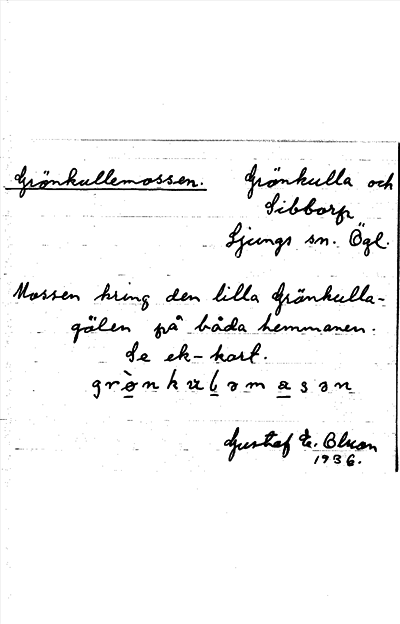 Grönkullemossen.
Grönkulla och
Sibborp
Ljungs sn. Ögl.
Mossen kring den lilla Grönkulla-
gölen på båda hemmanen.
Se ek-kart.
grø̀nkɯləmasən
Gustaf E.
1936.